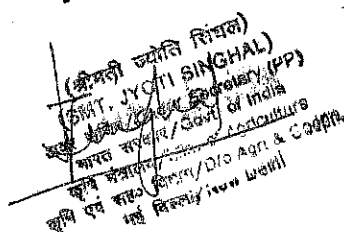 (श्रीमती ज्योति सिंघल)
(SMT. JYOTI SINGHAL)
Secretary (PP)
भारत सरकार/Govt. of India
कृषि Agriculture
कृषि एवं सह० विभाग/D/o Agri. & Coopn.
नई दिल्ली/New Delhi